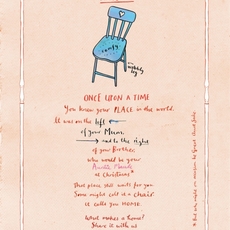 comfy
wobbly leg
ONCE UPON A TIME
You knew your PLACE in the world.
It was on the left
of your Mum
and to the right
of your Brother,
who would be your
Auntie
at Christmas*
That place still waits for you.
Some might call it a chair
it calls you HOME.
What makes a home?
Share it with us